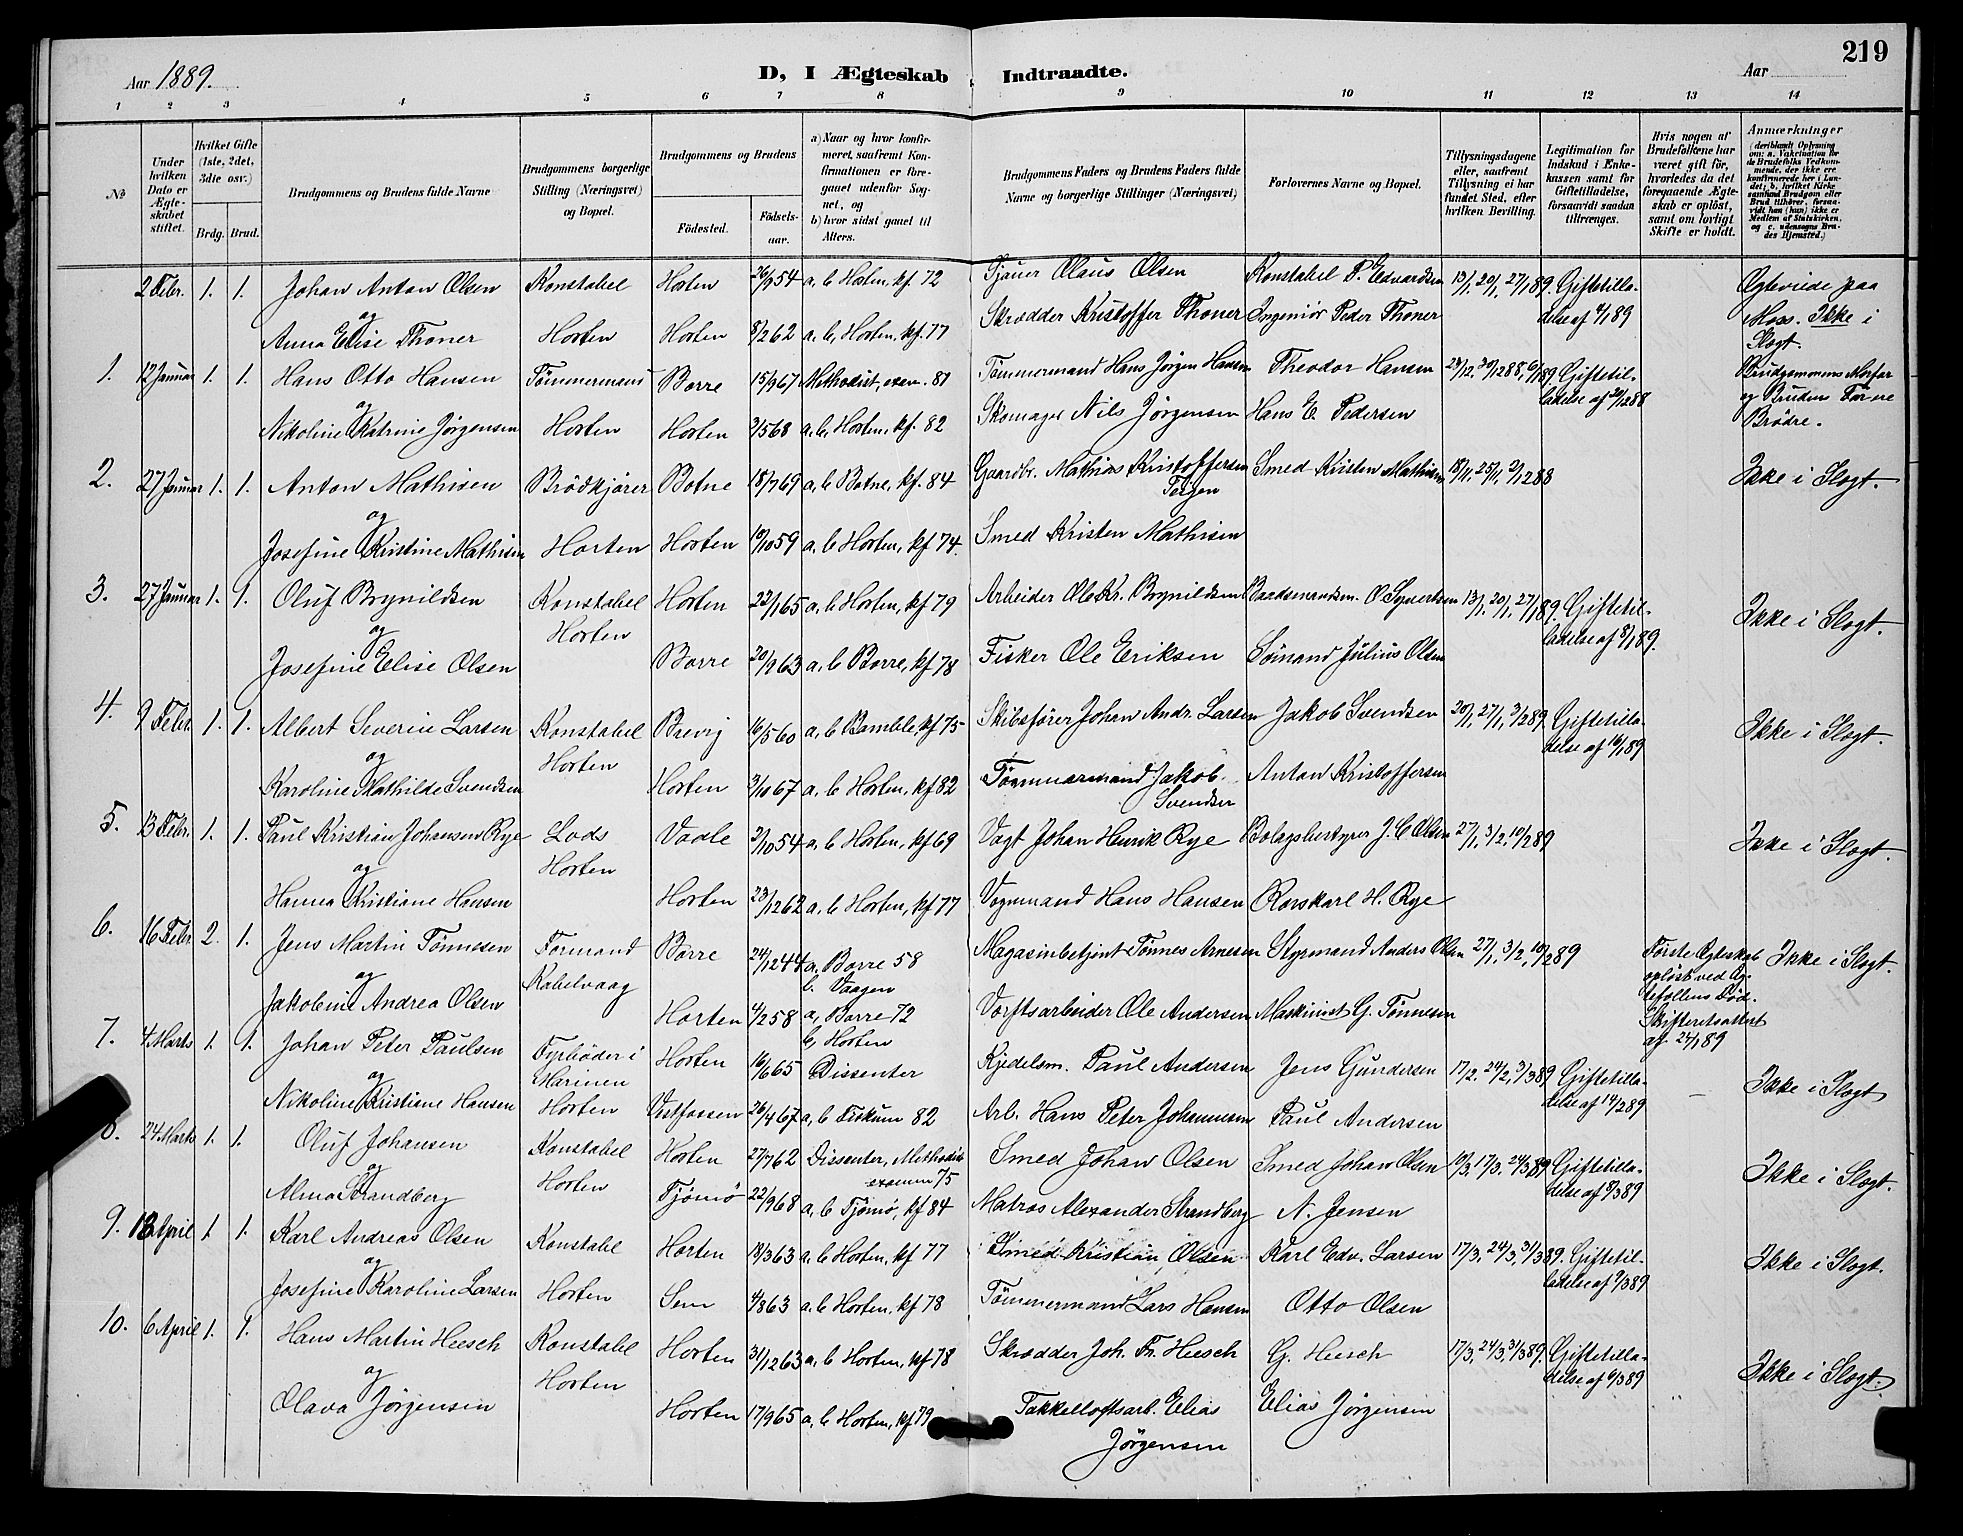 219
Aar 1889.
D, I Ægteskab Indtraadte.
Aar
1 2 3 4 5 6 7 8 9 10 11 12 13 14
No
Under hvilken Dato er Ægteskabet stiftet.
Hvilket Gifte (1ste, 2det, 3die osv.)
Brdg. Brud.
Brudgommens og Brudens fulde Navne
Brudgommens borgerlige Stilling (Næringsvei) og Bopæl.
Brudgommens og Brudens
Fødested. Fødselsaar.
a) Naar og hvor konfirmeret, saafremt Konfirmationen er foregaaet udenfor Sognet, og
b) hvor sidst gaaet til Alters.
Brudgommens Faders og Brudens Faders fulde Navne og borgerlige Stillinger (Næringsvei)
Forlovernes Navne og Bopæl.
Tillysningsdagene eller, saafremt Tillysning ei har fundet Sted, efter hvilken Bevilling.
Legitimation for Indskud i Enkekassen samt for Giftetilladelse, forsaavidt saadan tiltrænges.
Hvis nogen af Brudefolkene har været gift før, hvorledes da det foregaaende Ægteskab er opløst, samt om lovligt Skifte er holdt.
Anmærkninger (deriblandt Oplysning om: a. Vakcination for de Brudefolks Vedkommende, der ikke ere konfirmerede her i Landet; b. hvilket Kirkesamfund Brudgom eller Brud tilhører, forsaavidt han (hun) ikke er Medlem af Statskirken, og c. udensogns Brudes Hjemsted.)
2 Febr. 1. 1. Johan Anton Olsen Konstabel Horten 26/9 54 a, b Horten, kf. 72 Tjauer Olaus Olsen Konstabel P. Edvardsen 13/1, 20/1, 27/1 89. Giftetilla- Ægteviede paa
og
Anna Elise Thoner Horten Horten 8/2 62 a. b, Horten, kf. 77 Skrædder Kristoffer Thoner Ingeniør Peder Thoner delse af 4/1 89 Moss. Ikke i
Slægt.
1. 12 Januar 1. 1. Hans Otto Hansen Tømmermand Borre 15/9 67 Methodist, exam. 81 Tømmermand Hans Jørgen Hansen Theodor Hansen 23/12. 30/12 88, 6/1 89. Giftetil- Brudgommens Morfar
og
Nikoline Katrine Jørgensen Horten Horten 3/5 68 a, b, Horten, kf. 82 Skomager Nils Jørgensen Hans E Pedersen ladelse af 20/12 88 og Brudens Far ere
Brødre.
2. 27 Januar 1. 1. Anton Mathisen Brødkjører Botne 18/7 69 a, b Botne, kf. 84 Gaardbr. Mathias Kristoffersen Smed Kristen Mathisen 18/11, 25/11, 2/12 88 Ikke i Slægt.
og
Josefine Kristine Mathisen Horten Horten 10/10 59 a, b Horten, kf 74. Smed Kristen Mathisen
3. 27 Januar 1. 1. Oluf Brynildsen Konstabel Horten 22/1 65 a, b Horten, kf 79 Arbeider Ole Kr. Brynildsen Baadsmandsm. O Syvertsen 13/1, 20/1, 27/1 89. Giftetil- Ikke i Slægt.
og Horten
Josefine Elise Olsen Borre 20/9 63 a, b Borre, kf 78 Fisker Ole Eriksen Sømand Julius Olsen ladelse af 8/1 89.
4. 9 Febr. 1. 1. Albert Severin Larsen Konstabel Brevig 16/5 60 a, b Bamble, kf 75 Skibsfører Johan Andr. Larsen Jakob Svendsen 20/1, 27/1, 3/2 89. Giftetilla- Ikke i Slægt.
og Horten delse af 16/1 89
Karoline Mathilde Svendsen Horten 3/10 67 a. b Horten, kf 82 Tømmermand Jakob Svendsen Anton Kristoffersen
5. 13 Febr. 1. 1. Paul Kristian Johansen Rye Lods Vadle 2/10 54 a, b Horten, kf 69 Vagt Johan Henrik Rye Bolagsbestyrer J. C Olsen 27/1, 3/2, 10/2 89 Ikke i Slægt.
og Horten
Hanna Kristiane Hansen Horten 23/12 62 a, b Horten, kf 77 Vognmand Hans Hansen Rorskarl H. Rye
6. 16 Febr. 2. 1. Jens Martin Tønnesen Formand Borre 24/12 44 a, Borre 58 Magasinbetjent Tønnes Arnesen Styrmand Anders Olsen 27/1, 3/2, 10/2 89 Første Ægteskab Ikke i Slægt.
og Kabelvaag b. Vaagen opløst ved Æg-
Jakobine Andrea Olsen Horten 4/2 58 a, Borre 72 Værftsarbeider Ole Andersen Maskinist G. Tønnesen tefællens Død.
b, Horten Skifteretsattest af 24/1 89
7. 4 Marts 1. 1. Johan Peter Paulsen Fyrbøder i Horten 16/6 65 Dissenter Kjedelsm. Paul Andersen Jens Gundersen 17/2. 24/2, 3/3 89 Giftetilla- Ikke i Slægt
og Marinen
Nikoline Kristiane Hansen Horten Vestfossen 26/4 67 a, b Fiskum 82 Arb. Hans Peter Johannesen Paul Andersen delse af 14/2 89 –
8. 24 Marts 1. 1. Oluf Johansen Konstabel Horten 27/7 62 Dissenter, Methodist Smed Johan Olsen Smed Johan Olsen 10/3. 17/3. 24/3 89 Giftetilla- Ikke i Slægt.
og examen 75
Alma Strandberg Horten Tjømø 22/9 68 a, b Tjømø, kf 84 Matros Alexander Strandberg N. Jensen delse af 8/3 89
9. April 1. 1. Karl Andreas Olsen Konstabel Horten 18/3 63 a. b Horten, kf 77 Smed Kristian Olsen Karl Edv. Larsen 17/3, 24/3, 31/3 89. Giftetil- Ikke i Slægt.
og
Josefine Karoline Larsen Horten Sem 4/8 63 a. b Horten, kf 78 Tømmermand Lars Hansen Otto Olsen ladelse af 9/3 89
10. 6 April 1. 1. Hans Martin Heesch Konstabel Horten 31/12 63 a, b Horten, kf 78 Skrædder Joh. Fr. Heesch G. Heesch 17/3, 24/3, 31/3 89. Giftetilla- Ikke i Slægt.
og Horten delse af 6/3 89
Olava Jørgensen Horten 17/9 65 a, b Horten, kf 79 Takkelloftsarb. Elias Jørgensen Elias Jørgensen